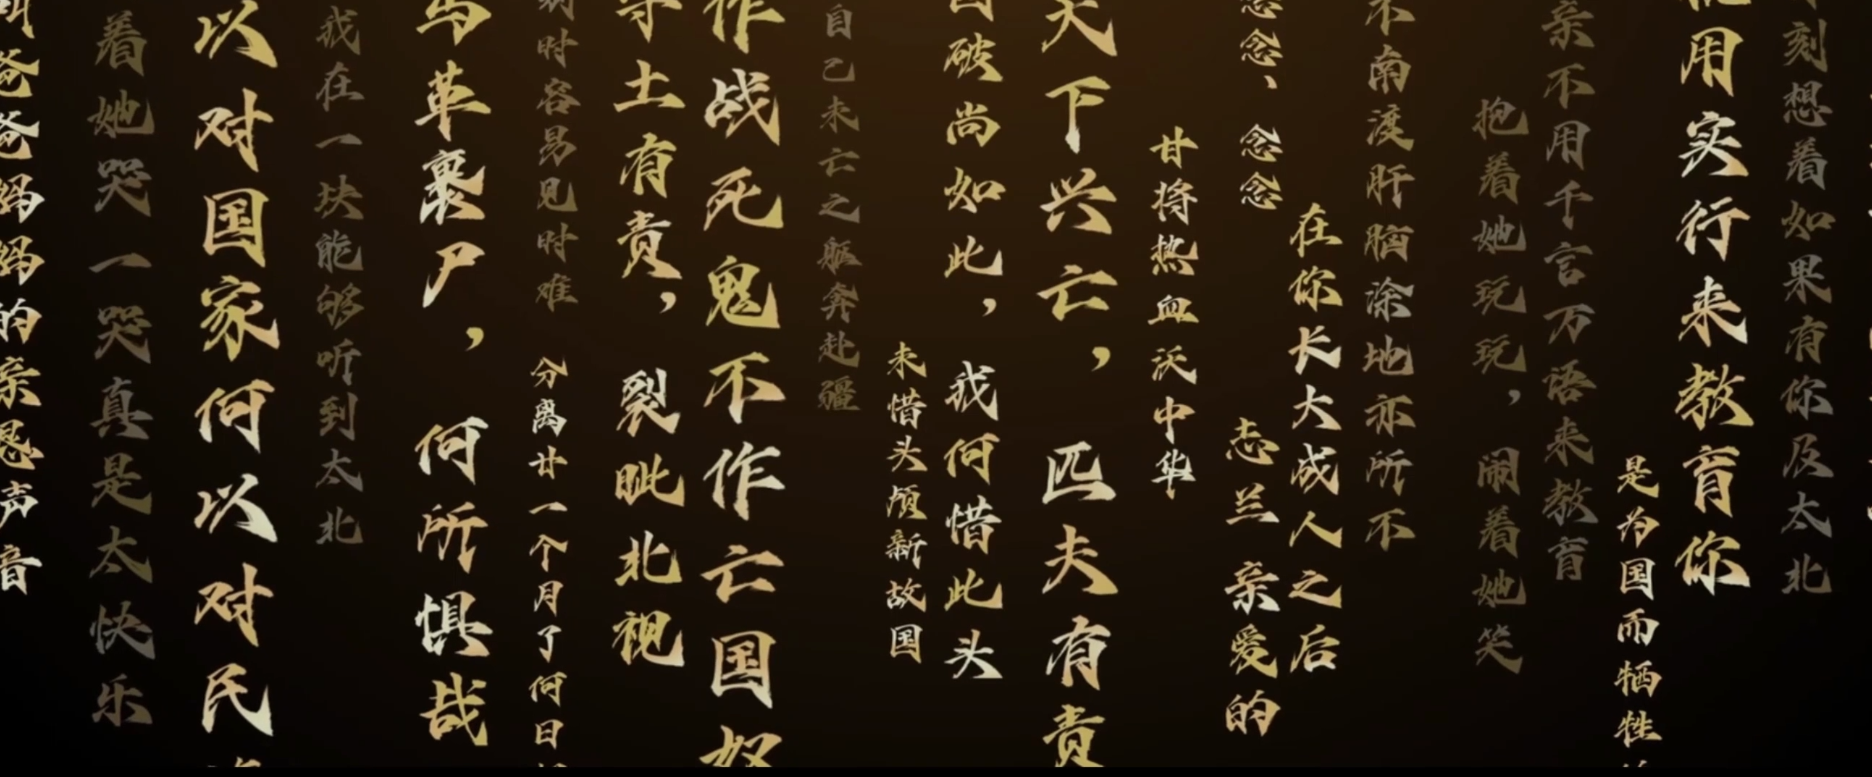 刻想着如果有你及太北
用实行来教育你
是为国而牺牲
亲不用千言万语来教育
抱着她玩玩，闹着她笑
不南渡肝脑涂地亦所不
在你长大成人之后
念念、念念
志兰 亲爱的
甘将热血沃中华
天下兴亡，匹夫有责
国破尚如此，我何惜此头
未惜头颅新故国
自己未亡之躯奔赴疆
作战死鬼不作亡国奴
守土有责，裂眦北视
别时容易见时难
分离廿一个月了何日
马革裹尸，何所惧哉
我在一块能够听到太北
以对国家何以对民
着她哭一哭真是太快乐
叫爸爸妈妈的亲恳声音